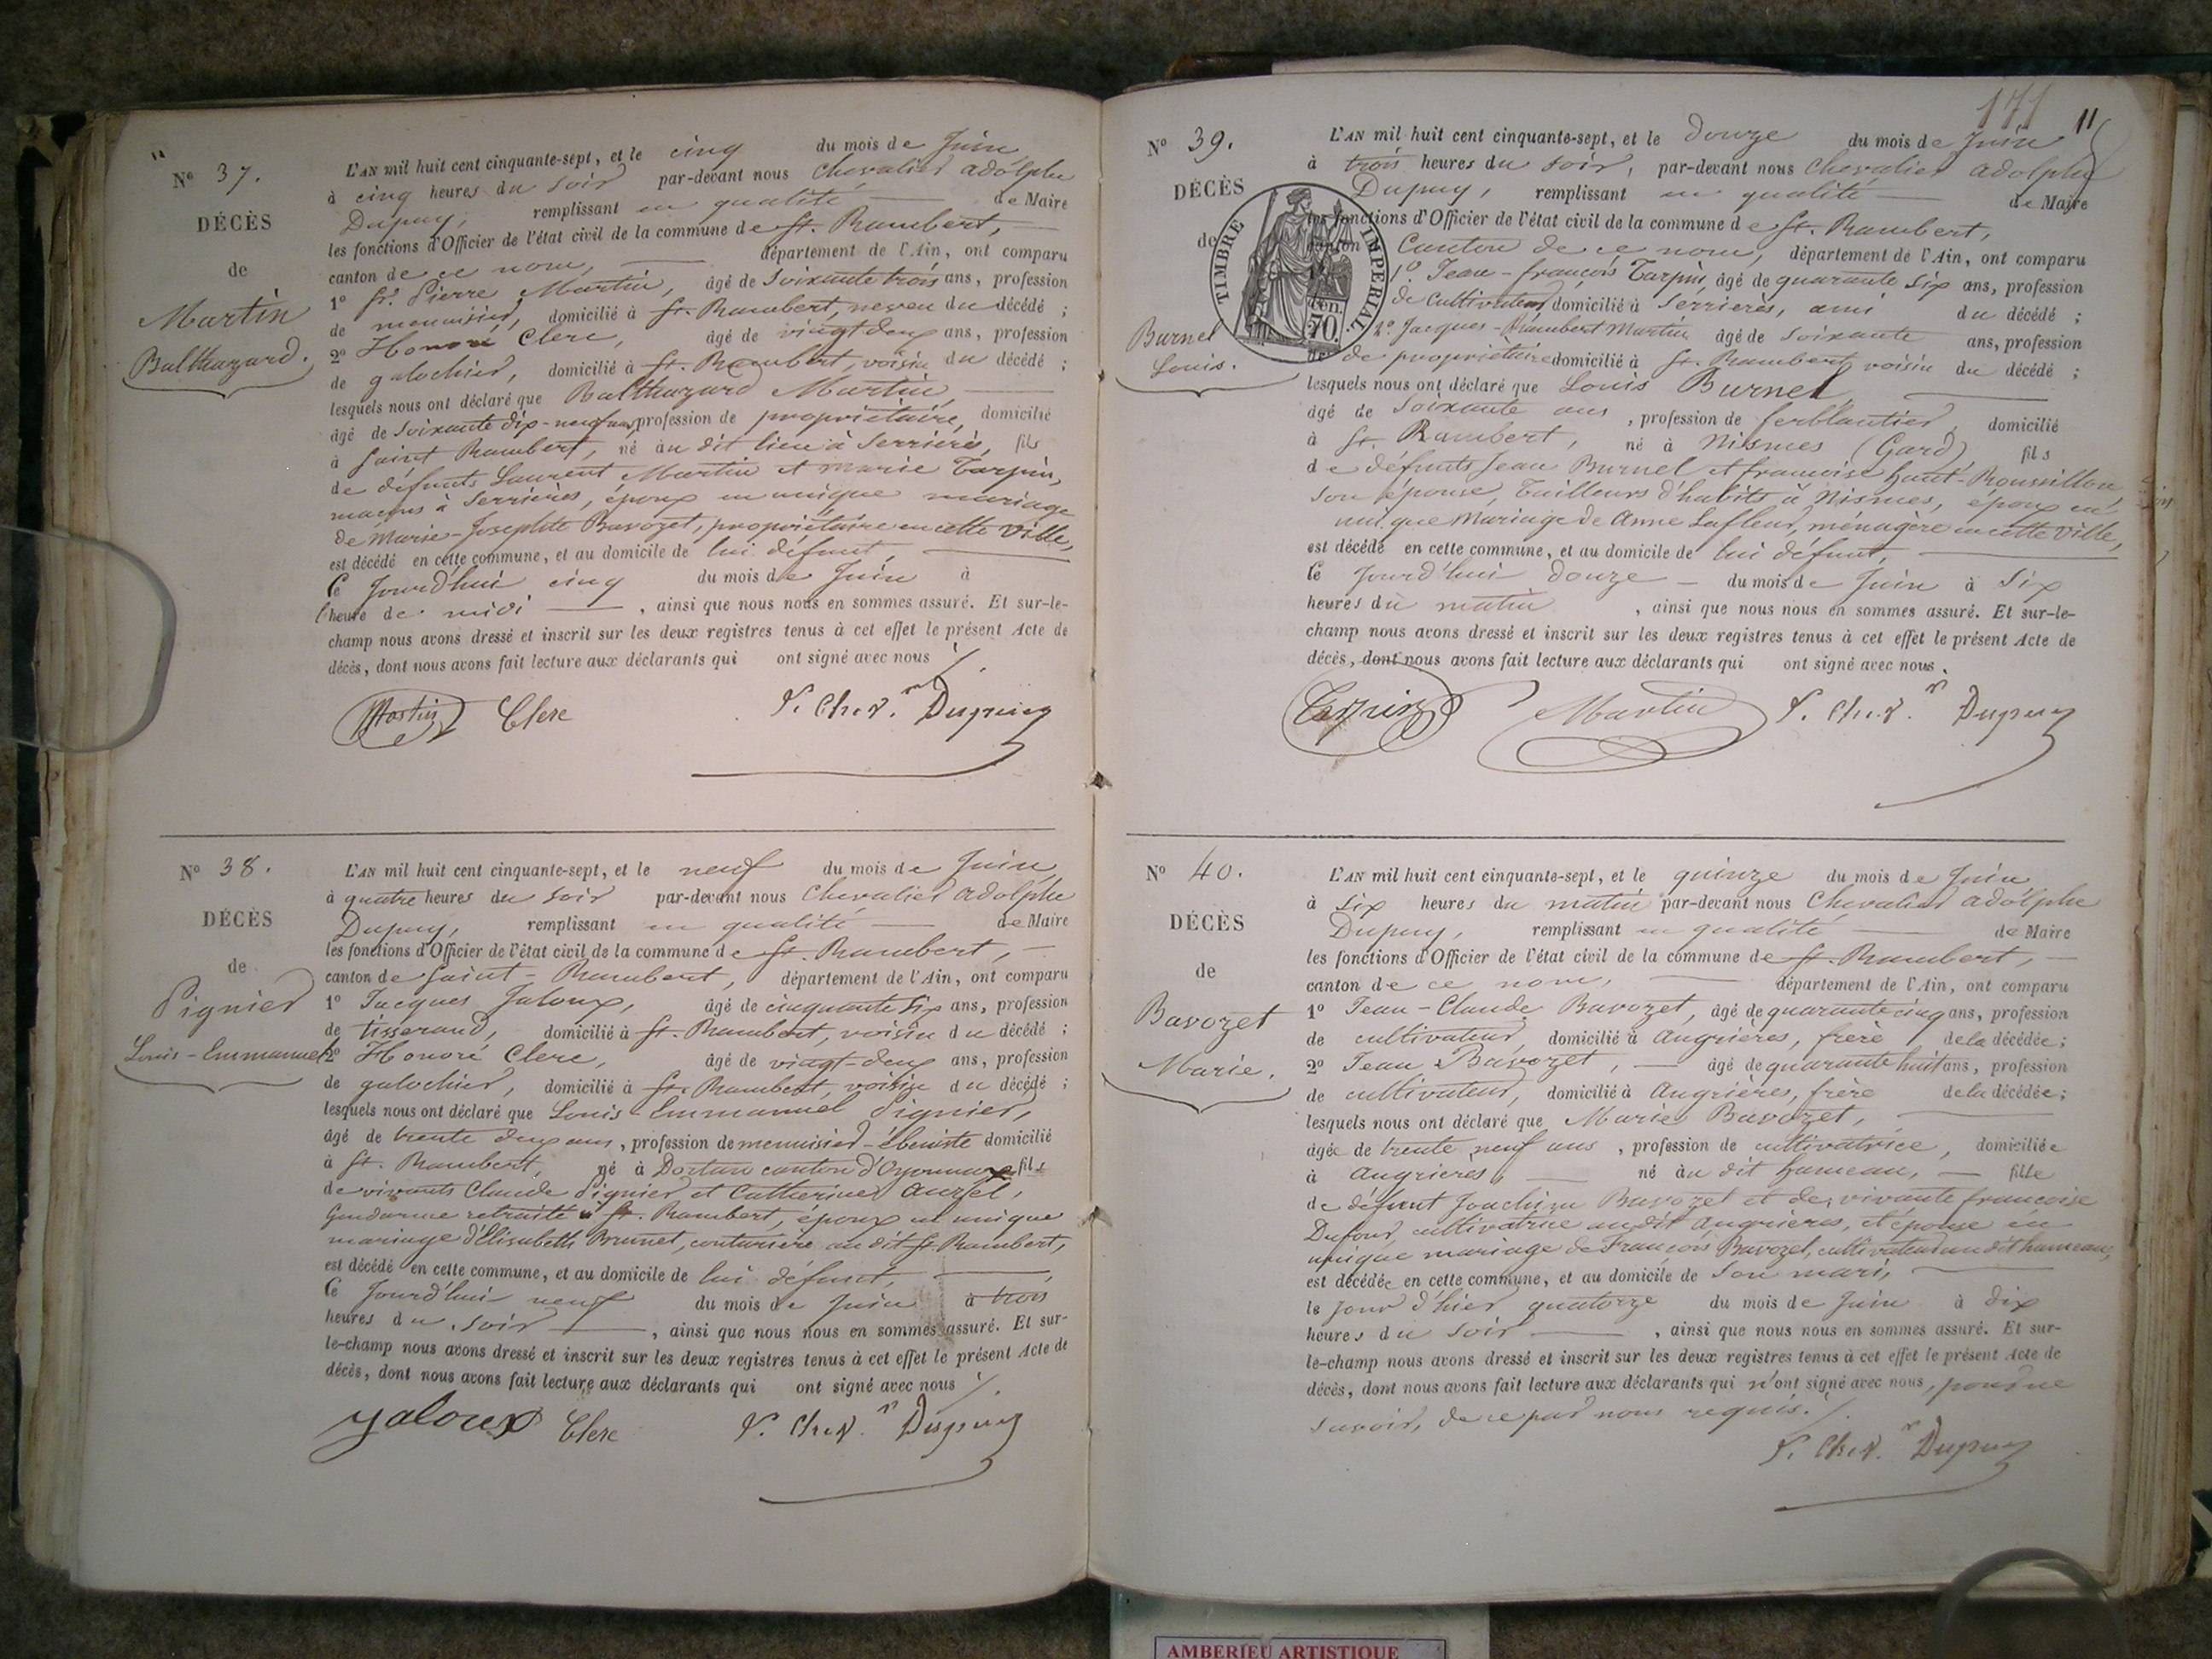 N° 37.
DÉCÈS
de
Martin
Balthazard.
L'AN mil huit cent cinquante-sept, et le cinq du mois de Juin
à cinq heures du soir par-devant nous Chevalier Adolphe
Dupuy, remplissant en qualité de Maire
les fonctions d'Officier de l'état civil de la commune de St. Rambert,
canton de ce nom, département de l'Ain, ont comparu
1° Pierre Martin, âgé de soixante trois ans, profession
de menuisier, domicilié à St. Rambert, neveu du décédé ;
2° Honoré Clerc, âgé de vingt-deux ans, profession
de galochier, domicilié à St. Rambert, voisin du décédé ;
lesquels nous ont déclaré que Balthazard Martin,
âgé de soixante dix-neuf ans, profession de propriétaire, domicilié
à Saint Rambert, né au dit lieu à Serrières, fils
de défunts Laurent Martin et Marie Tarpin,
maçons à Serrières, époux en unique mariage
de Marie-Josephte Bavozet, propriétaire en cette ville,
est décédé en cette commune, et au domicile de lui défunt,
Ce Jourd'hui cinq du mois de Juin à
l'heure de midi , ainsi que nous nous en sommes assuré. Et sur-le-
champ nous avons dressé et inscrit sur les deux registres tenus à cet effet le présent Acte de
décès, dont nous avons fait lecture aux déclarants qui ont signé avec nous
Martin Clerc Chev. Dupuy
N° 38.
DÉCÈS
de
Pignier
Louis-Emmanuel
L'AN mil huit cent cinquante-sept, et le neuf du mois de Juin
à quatre heures du soir par-devant nous Chevalier Adolphe
Dupuy, remplissant en qualité de Maire
les fonctions d'Officier de l'état civil de la commune de St. Rambert,
canton de Saint-Rambert, département de l'Ain, ont comparu
1° Jacques Jaloux, âgé de cinquante six ans, profession
de tisserand, domicilié à St. Rambert, voisin du décédé ;
2° Honoré Clerc, âgé de vingt-deux ans, profession
de galochier, domicilié à St. Rambert, voisin du décédé ;
lesquels nous ont déclaré que Louis-Emmanuel Pignier,
âgé de trente deux ans, profession de menuisier-ébéniste domicilié
à St. Rambert, né à Dortan canton d'Oyonnax fils
de vivants Claude Pignier et Catherine
Gendarme retraité à St. Rambert, époux en unique
mariage d'Elisabeth Brunet, couturière au dit St. Rambert,
est décédé en cette commune, et au domicile de lui défunt,
Ce Jourd'hui neuf du mois de Juin à trois
heures du soir , ainsi que nous nous en sommes assuré. Et sur-
le-champ nous avons dressé et inscrit sur les deux registres tenus à cet effet le présent Acte de
décès, dont nous avons fait lecture aux déclarants qui ont signé avec nous
yaloux Clerc Chev. Dupuy
171 11
N° 39.
DÉCÈS
de
Burnel
Louis.
TIMBRE IMPÉRIAL
70.
L'AN mil huit cent cinquante-sept, et le douze du mois de Juin
à trois heures du soir, par-devant nous Chevalier Adolphe
Dupuy, remplissant en qualité de Maire
les fonctions d'Officier de l'état civil de la commune de St. Rambert,
Canton de ce nom, département de l'Ain, ont comparu
1° Jean-françois Tarpin, âgé de quarante six ans, profession
de cultivateur, domicilié à Serrières, ami du décédé ;
2° Jacques-Rambert Martin âgé de soixante ans, profession
de propriétaire domicilié à St. Rambert, voisin du décédé ;
lesquels nous ont déclaré que Louis Burnel,
âgé de soixante ans, profession de ferblantier, domicilié
à St. Rambert, né à Nismes (Gard) fils
de défunts Jean Burnel et francoise haut-Roussillon,
son épouse, Tailleurs d'habits à Nismes, époux en
unique Mariage de Anne Lafleur, ménagère en cette ville,
est décédé en cette commune, et au domicile de lui défunt,
Ce Jourd'hui douze du mois de Juin à Six
heures du matin , ainsi que nous nous en sommes assuré. Et sur-le-
champ nous avons dressé et inscrit sur les deux registres tenus à cet effet le présent Acte de
décès, dont nous avons fait lecture aux déclarants qui ont signé avec nous.
Tarpin Martin Chev. Dupuy
N° 40.
DÉCÈS
de
Bavozet
Marie.
L'AN mil huit cent cinquante-sept, et le quinze du mois de Juin
à six heures du matin par-devant nous Chevalier Adolphe
Dupuy, remplissant en qualité de Maire
les fonctions d'Officier de l'état civil de la commune de St. Rambert,
canton de ce nom, département de l'Ain, ont comparu
1° Jean-Claude Bavozet, âgé de quarante cinq ans, profession
de cultivateur, domicilié à Angrières, frère de la décédée ;
2° Jean Bavozet, âgé de quarante huit ans, profession
de cultivateur, domicilié à Angrières, frère de la décédée ;
lesquels nous ont déclaré que Marie Bavozet,
âgée de trente neuf ans, profession de cultivatrice, domiciliée
à Angrières, né au dit hameau, fille
de défunt Joachim Bavozet et de vivante francoise
Dufour, cultivatrice au dit Angrières, et épouse en
unique mariage de François Bavozet, cultivateur au dit hameau,
est décédée en cette commune, et au domicile de son mari,
le jour d'hier quatorze du mois de Juin à dix
heures du soir , ainsi que nous nous en sommes assuré. Et sur-
le-champ nous avons dressé et inscrit sur les deux registres tenus à cet effet le présent Acte de
décès, dont nous avons fait lecture aux déclarants qui n'ont signé avec nous, pour ne
savoir, de ce par nous requis.
Chev. Dupuy
AMBERIEU ARTISTIQUE